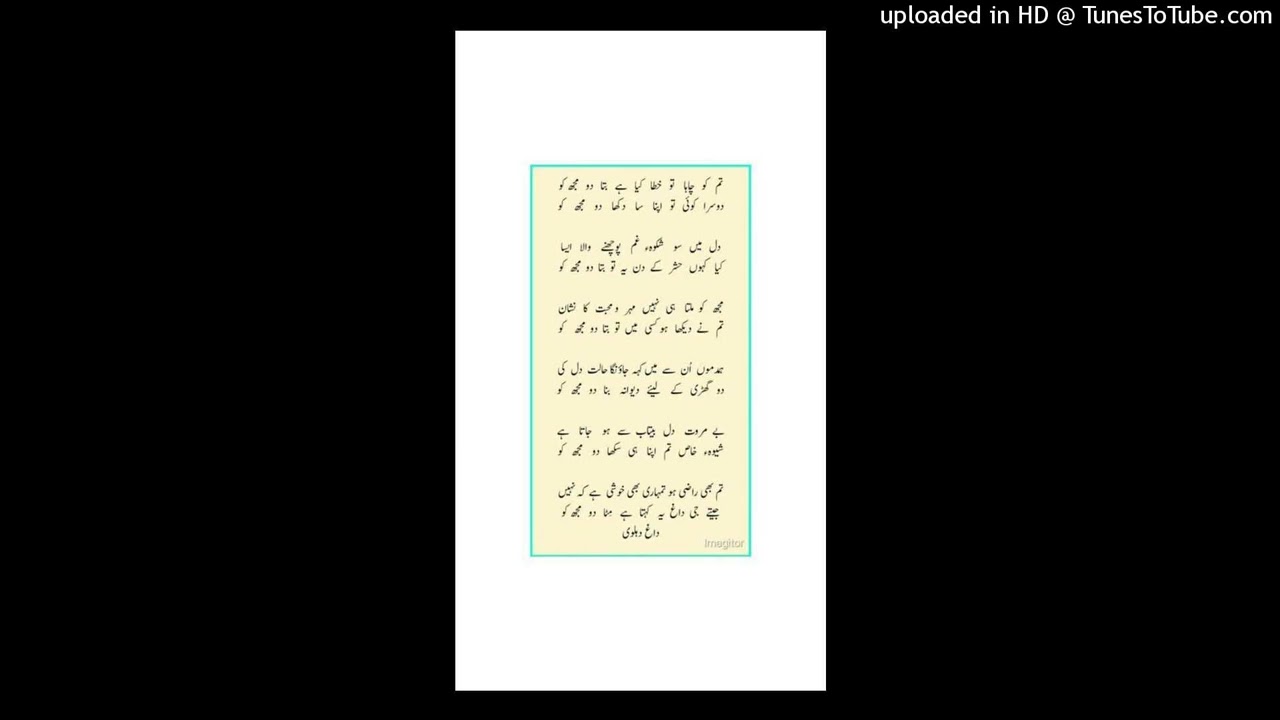 uploaded in HD @ TunesToTube.com
تم کو چاہا تو خطا کیا ہے بتا دو مجھ کو
دوسرا کوئی تو اپنا سا دکھا دو مجھ کو
دل میں سو شکوہء غم پوچھنے والا ایسا
کیا کہوں حشر کے دن یہ تو بتا دو مجھ کو
مجھ کو ملتا ہی نہیں مہر و محبت کا نشان
تم نے دیکھا ہو کسی میں تو بتا دو مجھ کو
ہمدموں اُن سے میں کہہ جاؤنگا حالت دل کی
دو گھڑی کے لیئے دیوانہ بنا دو مجھ کو
بے مروت دل بیتاب سے ہو جاتا ہے
شیوہء خاص تم اپنا ہی سکھا دو مجھ کو
تم بھی راضی ہو تمہاری بھی خوشی ہے کہ نہیں
جیتے جی داغ یہ کہتا ہے مٹا دو مجھ کو
داغ دہلوی
Imagitor